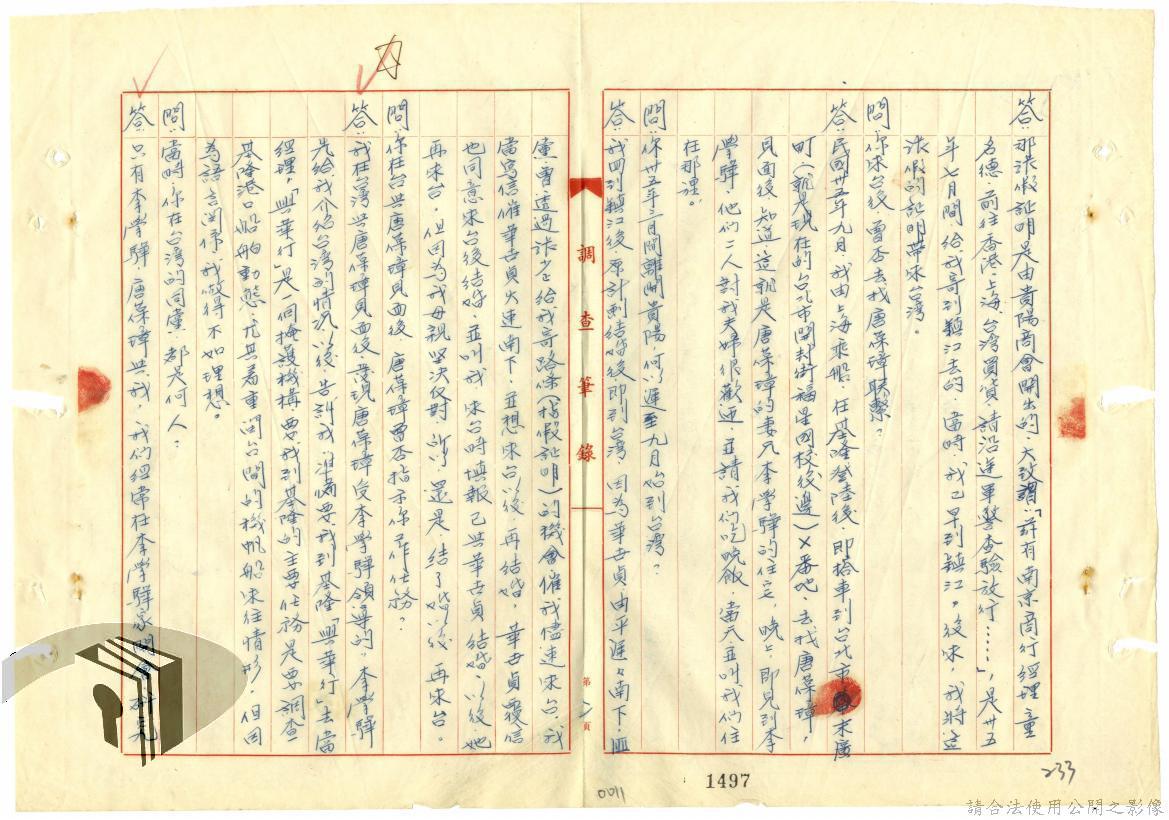 答：那張假証明是由貴陽商會開出的，大致謂：「茲有南京商行經理童
為德，前往香港、上海、台灣買貨，請沿途軍警查驗放行……」，是卅五
年七月間，給我寄到鎮江去的，當時，我已早到鎮江。後來，我將這
張假的証明帶來台灣。
問：你來台後，曾否去找唐葆璋聯繫？
答：民國卅五年九月，我由上海乘船，在基隆登陸後，即搭車到台北市末廣
町（就是現在的台北市開封街福星國校後邊）×番地，去找唐葆璋，
見面後，知道這就是唐葆璋的妻兄李學驊的住宅，晚上，即見到李
學驊，他們二人對我夫婦很歡迎，並請我們吃晚飯，當天並叫我們住
在那裡。
問：你卅五年三月間離開貴陽，何以遲至九月始到台灣？
答：我回到鎮江後，原計劃結婚後即到台灣，因為華世貞由平遲遲南下，匪
黨曾透過張 給我寄路條（指假証明）的機會催我儘速來台，我
當寫信催華世貞火速南下，並想來台以後，再結婚，華世貞覆信
也同意來台後結婚，並叫我來台時填報已與華世貞結婚，以後，她
再來台。但因為我母親堅決反對，所以，還是結了婚以後，再來台。
問：你在台與唐葆璋見面後，唐葆璋曾否指示你工作任務？
答：我在台灣與唐葆璋見面後，發現唐葆璋受李學驊領導的，李學驊
先給我介紹台灣的情況，以後，告訴我，準備要我到基隆「興華行」去當
經理，「興華行」是一個掩護機構，要我到基隆的主要任務，是要調查
基隆港口船舶動態，尤其着重閩台間的機帆船來往情形，但因
為語言關係，我做得不如理想。
問：當時，你在台灣的同黨，都是何人？
答：只有李學驊、唐葆璋與我，我們經常在李學驊家開會研究
調查筆錄
第 頁
0011
1497
233
請合法使用公開之影像